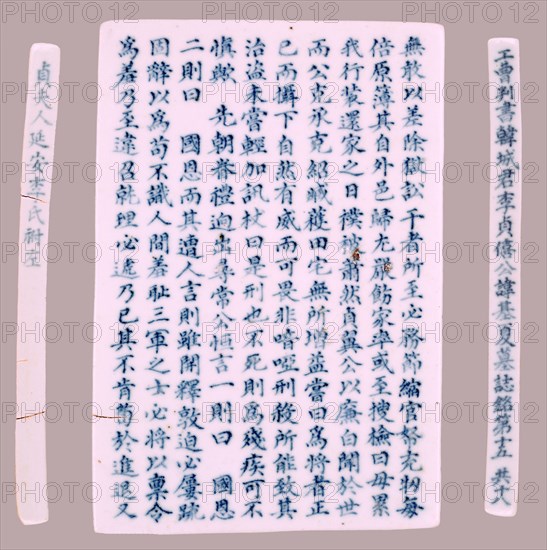 工曹判書韓城君李貞僖公諱基夏墓誌銘第十五 共
無敢以差除獄訟干者所至必務節縮官帑充牣每
倍原簿其自外邑歸尤嚴飭家率或至搜檢曰毋累
我行裝還家之日襆被蕭然貞翼公以廉白聞於世
而公克承克紹臧穫田宅無所增益嘗曰爲將者正
己而懾下自然有威而可畏非喑啞刑殺所能致其
治盜未嘗輕加訊杖曰是刑也不死則爲殘疾可不
愼歟 先朝眷禮逈出尋常公恒言一則曰 國恩
二則曰 國恩而其遭人言則雖開釋敦迫必屢疏
固辭以爲苟不識人間羞恥三軍之士必將以稟令
爲羞乃至違召就理必遞乃已其不肯苟於進退又
貞夫人延安李氏祔左